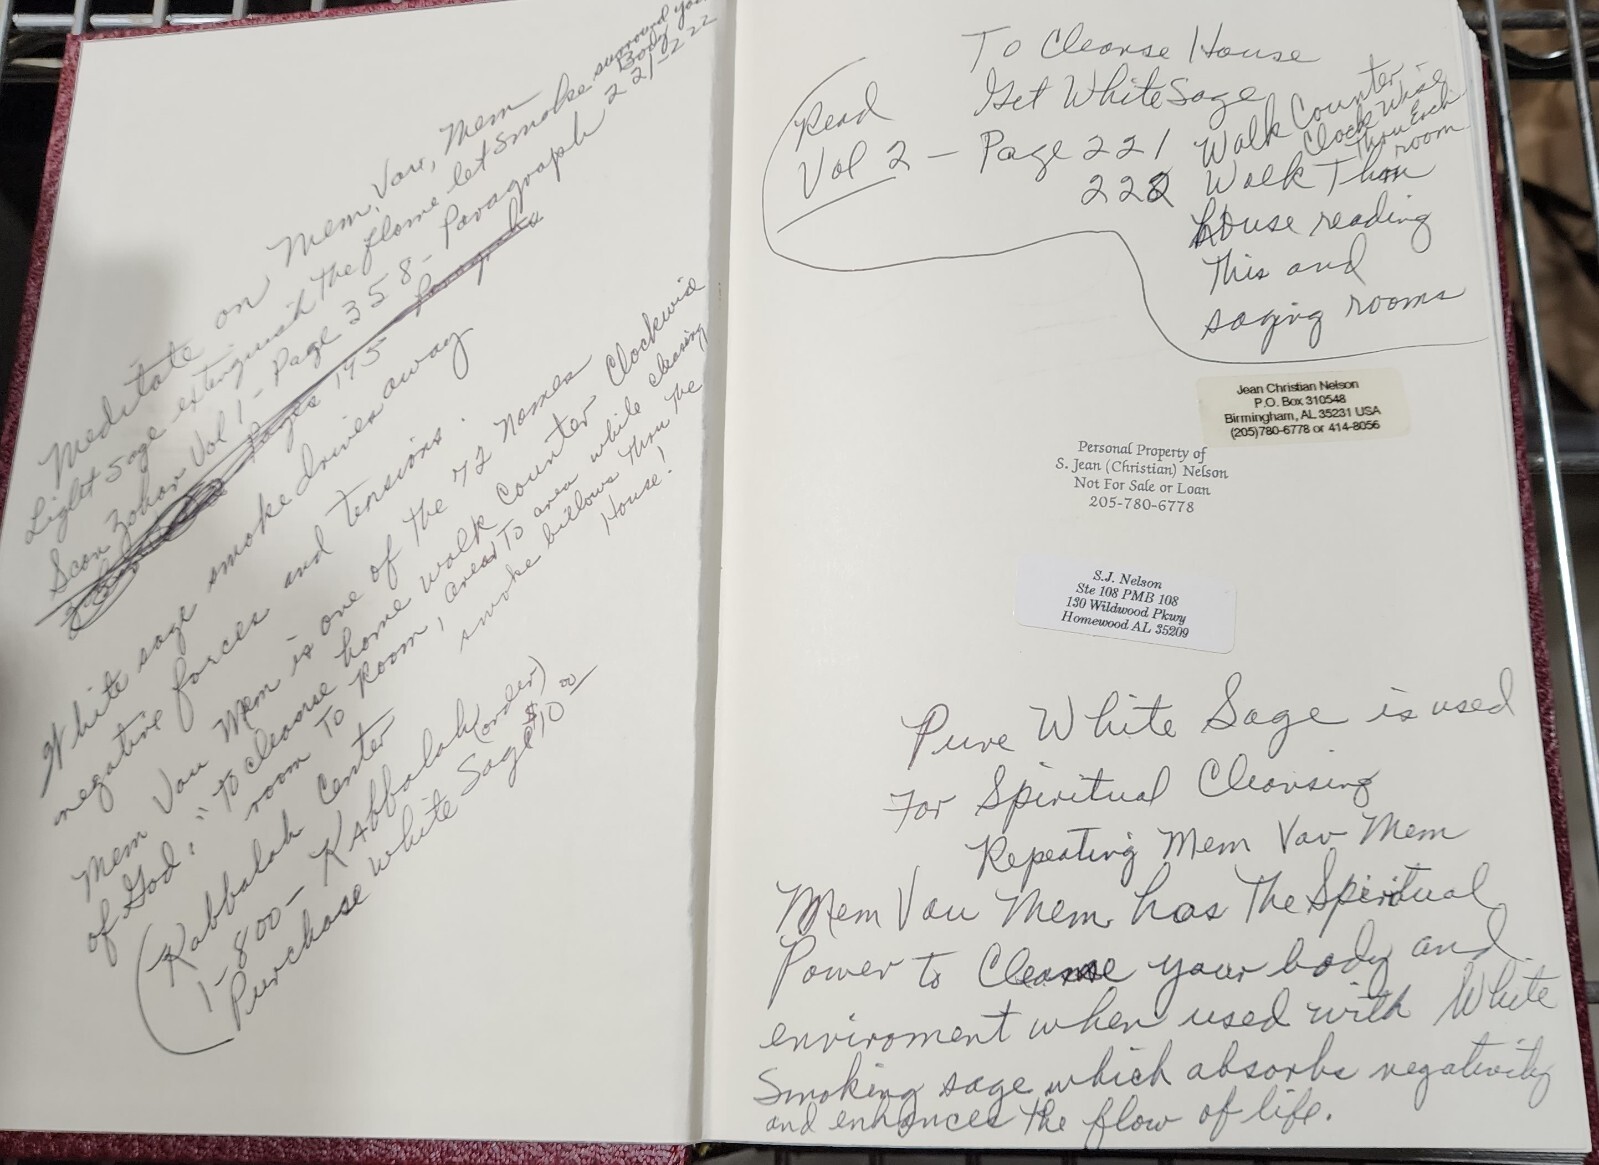 Meditate on Mem, Vav, Mem
Light Sage extinguish the flame let smoke surround your
Body
Scan Zohar Vol 1 - Page 358 - Paragraph 221-222
Pages 195 Paragraphs
White sage smoke drives away
negative forces and tensions.
Mem Vav Mem is one of the 72 names
of God, "To cleanse home walk counter Clockwid
room To Room, area To area while cleaning
smoke billows thru the
House!
Kabbalah Center
1-800-KAbbalah (order)
Purchase white Sage $10.00
To Cleanse House
Get White Sage
Read
Vol 2 - Page 221
222
Walk Counter-
Clock Wise
Thru Each
room
Walk Thru
house reading
This and
saging rooms
Jean Christian Nelson
P.O. Box 310548
Birmingham, AL 35231 USA
(205)780-6778 or 414-8056
Personal Property of
S. Jean (Christian) Nelson
Not For Sale or Loan
205-780-6778
S.J. Nelson
Ste 108 PMB 108
130 Wildwood Pkwy
Homewood AL 35209
Pure White Sage is used
For Spiritual Cleansing
Repeating Mem Vav Mem
Mem Vav Mem has The Spiritual
Power to Cleanse your body and
enviroment when used with White
Smoking sage which absorbs negativity
and enhances the flow of life.